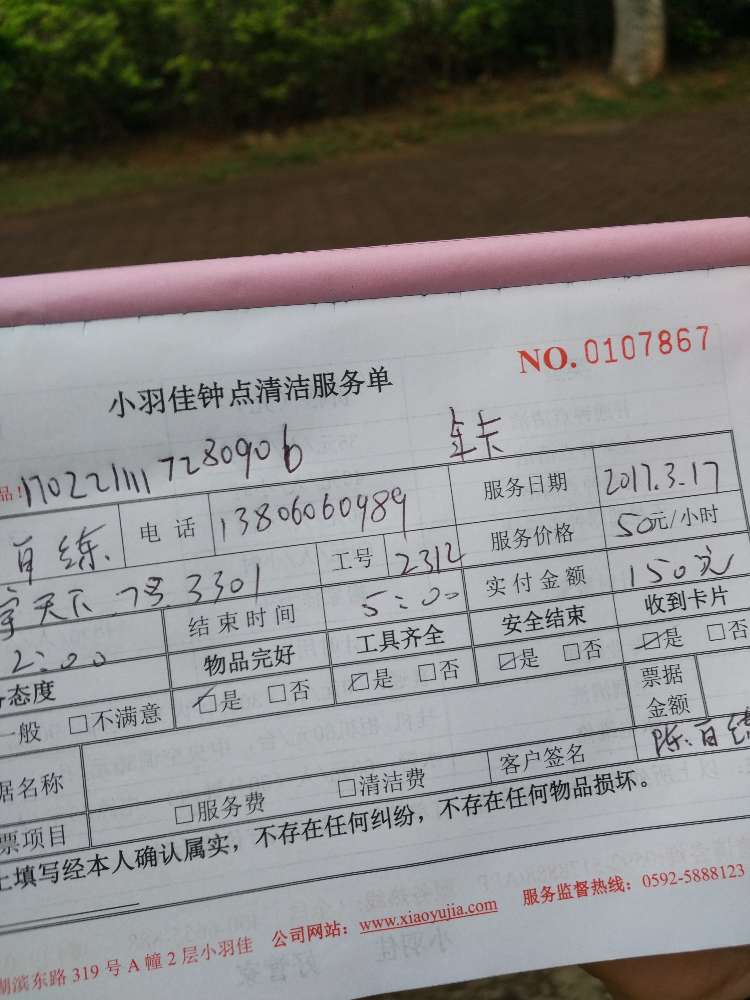 NO.0107867
小羽佳钟点清洁服务单
品！170221111 7280906 年卡
百练 电话 13806060989 服务日期 2017.3.17
天下.7号.3301 工号 2312 服务价格 50元/小时
2:00 结束时间 5:00 实付金额 150元
态度 物品完好 工具齐全 安全结束 收到卡片
一般 □不满意 ☑是 □否 ☑是 □否 ☑是 □否 ☑是 □否
票据金额
据名称 客户签名 陈百练
票项目 □服务费 □清洁费
上填写经本人确认属实，不存在任何纠纷，不存在任何物品损坏。
湖滨东路319号A幢2层小羽佳 公司网站：www.xiaoyujia.com 服务监督热线：0592-5888123